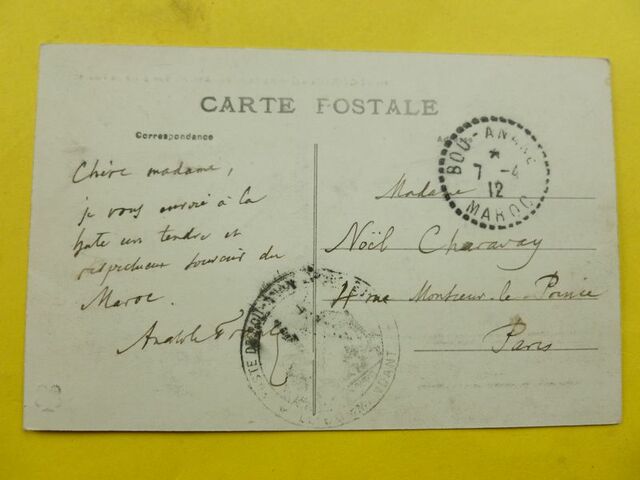 CARTE POSTALE
Correspondance
Chère madame,
je vous envoie à la
hate un tendre et
respectueux souvenir du
Maroc.
Anatole France
BOU-ANANE
7 -4
12
MAROC
Madame
Noël Charavay
4 rue Monsieur le Prince
Paris
POSTE DE BOU-ANAN
COMMANDANT